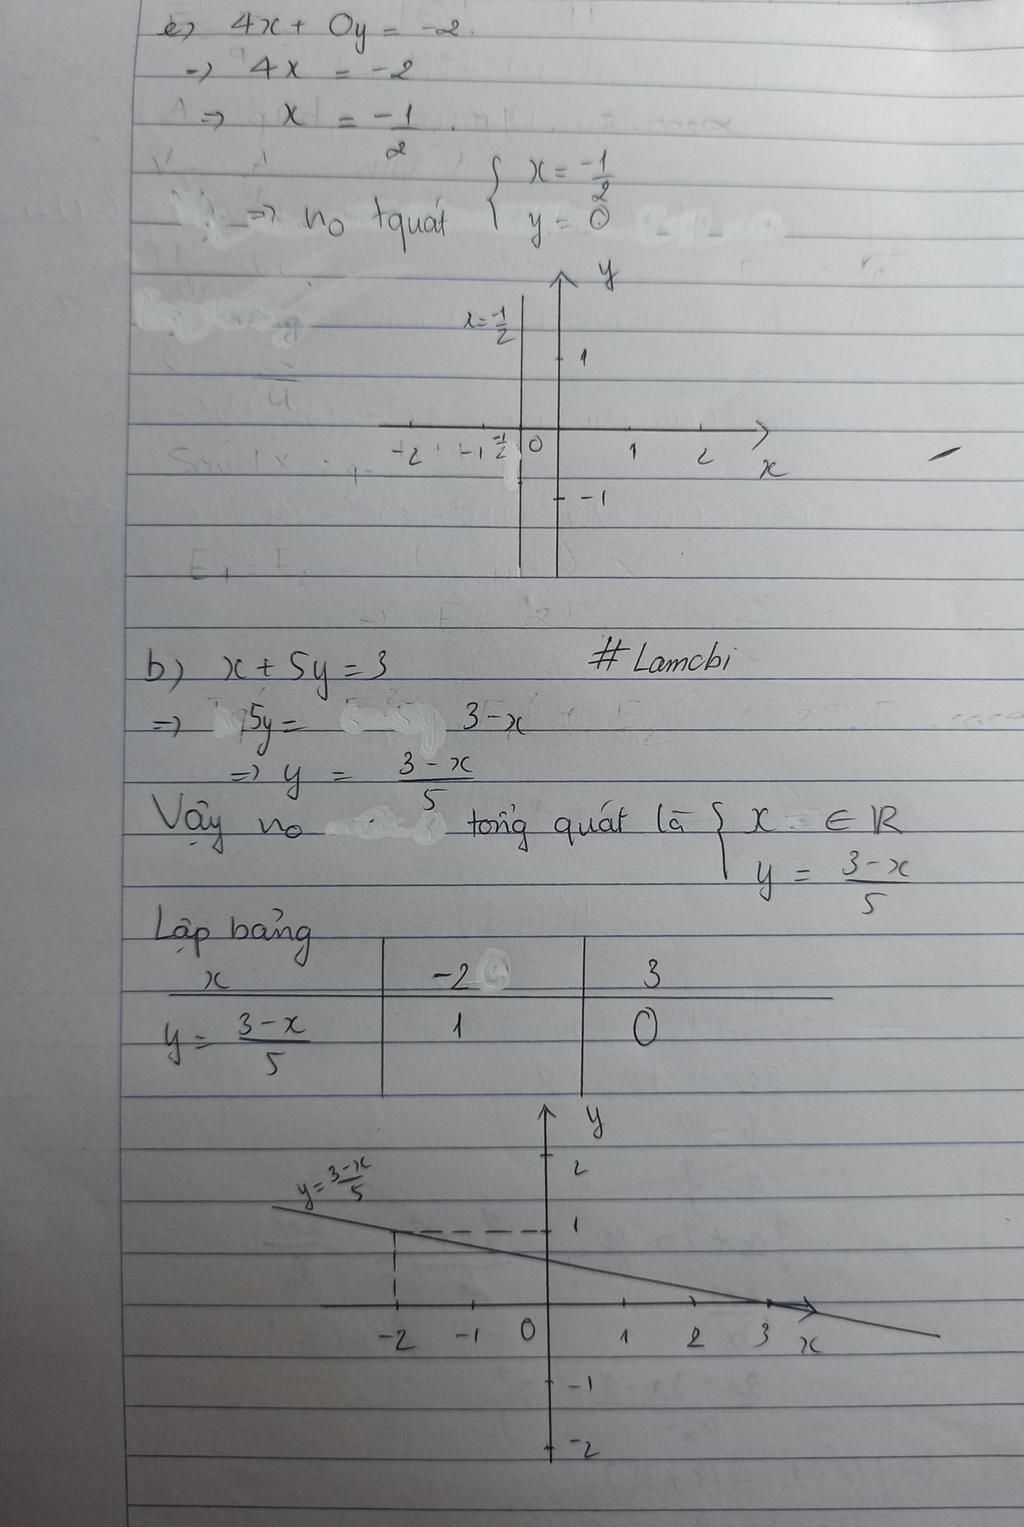 e) 4x + 0y = -2.
=> 4x = -2
=> x = -1/2.
=> no tquát { x = -1/2
y = 0
y
x = -1/2
1
-2 -1 -1/2 0 1 2
x
-1
b) x + 5y = 3 #Lamchi
=> 5y = 3 - x
=> y = 3 - x / 5
Vậy no tổng quát là { x ∈ R
y = 3 - x / 5
Lập bảng
x -2 3
y = 3 - x / 5 1 0
y
2
y = 3-x/5
1
-2 -1 0 1 2 3 x
-1
-2